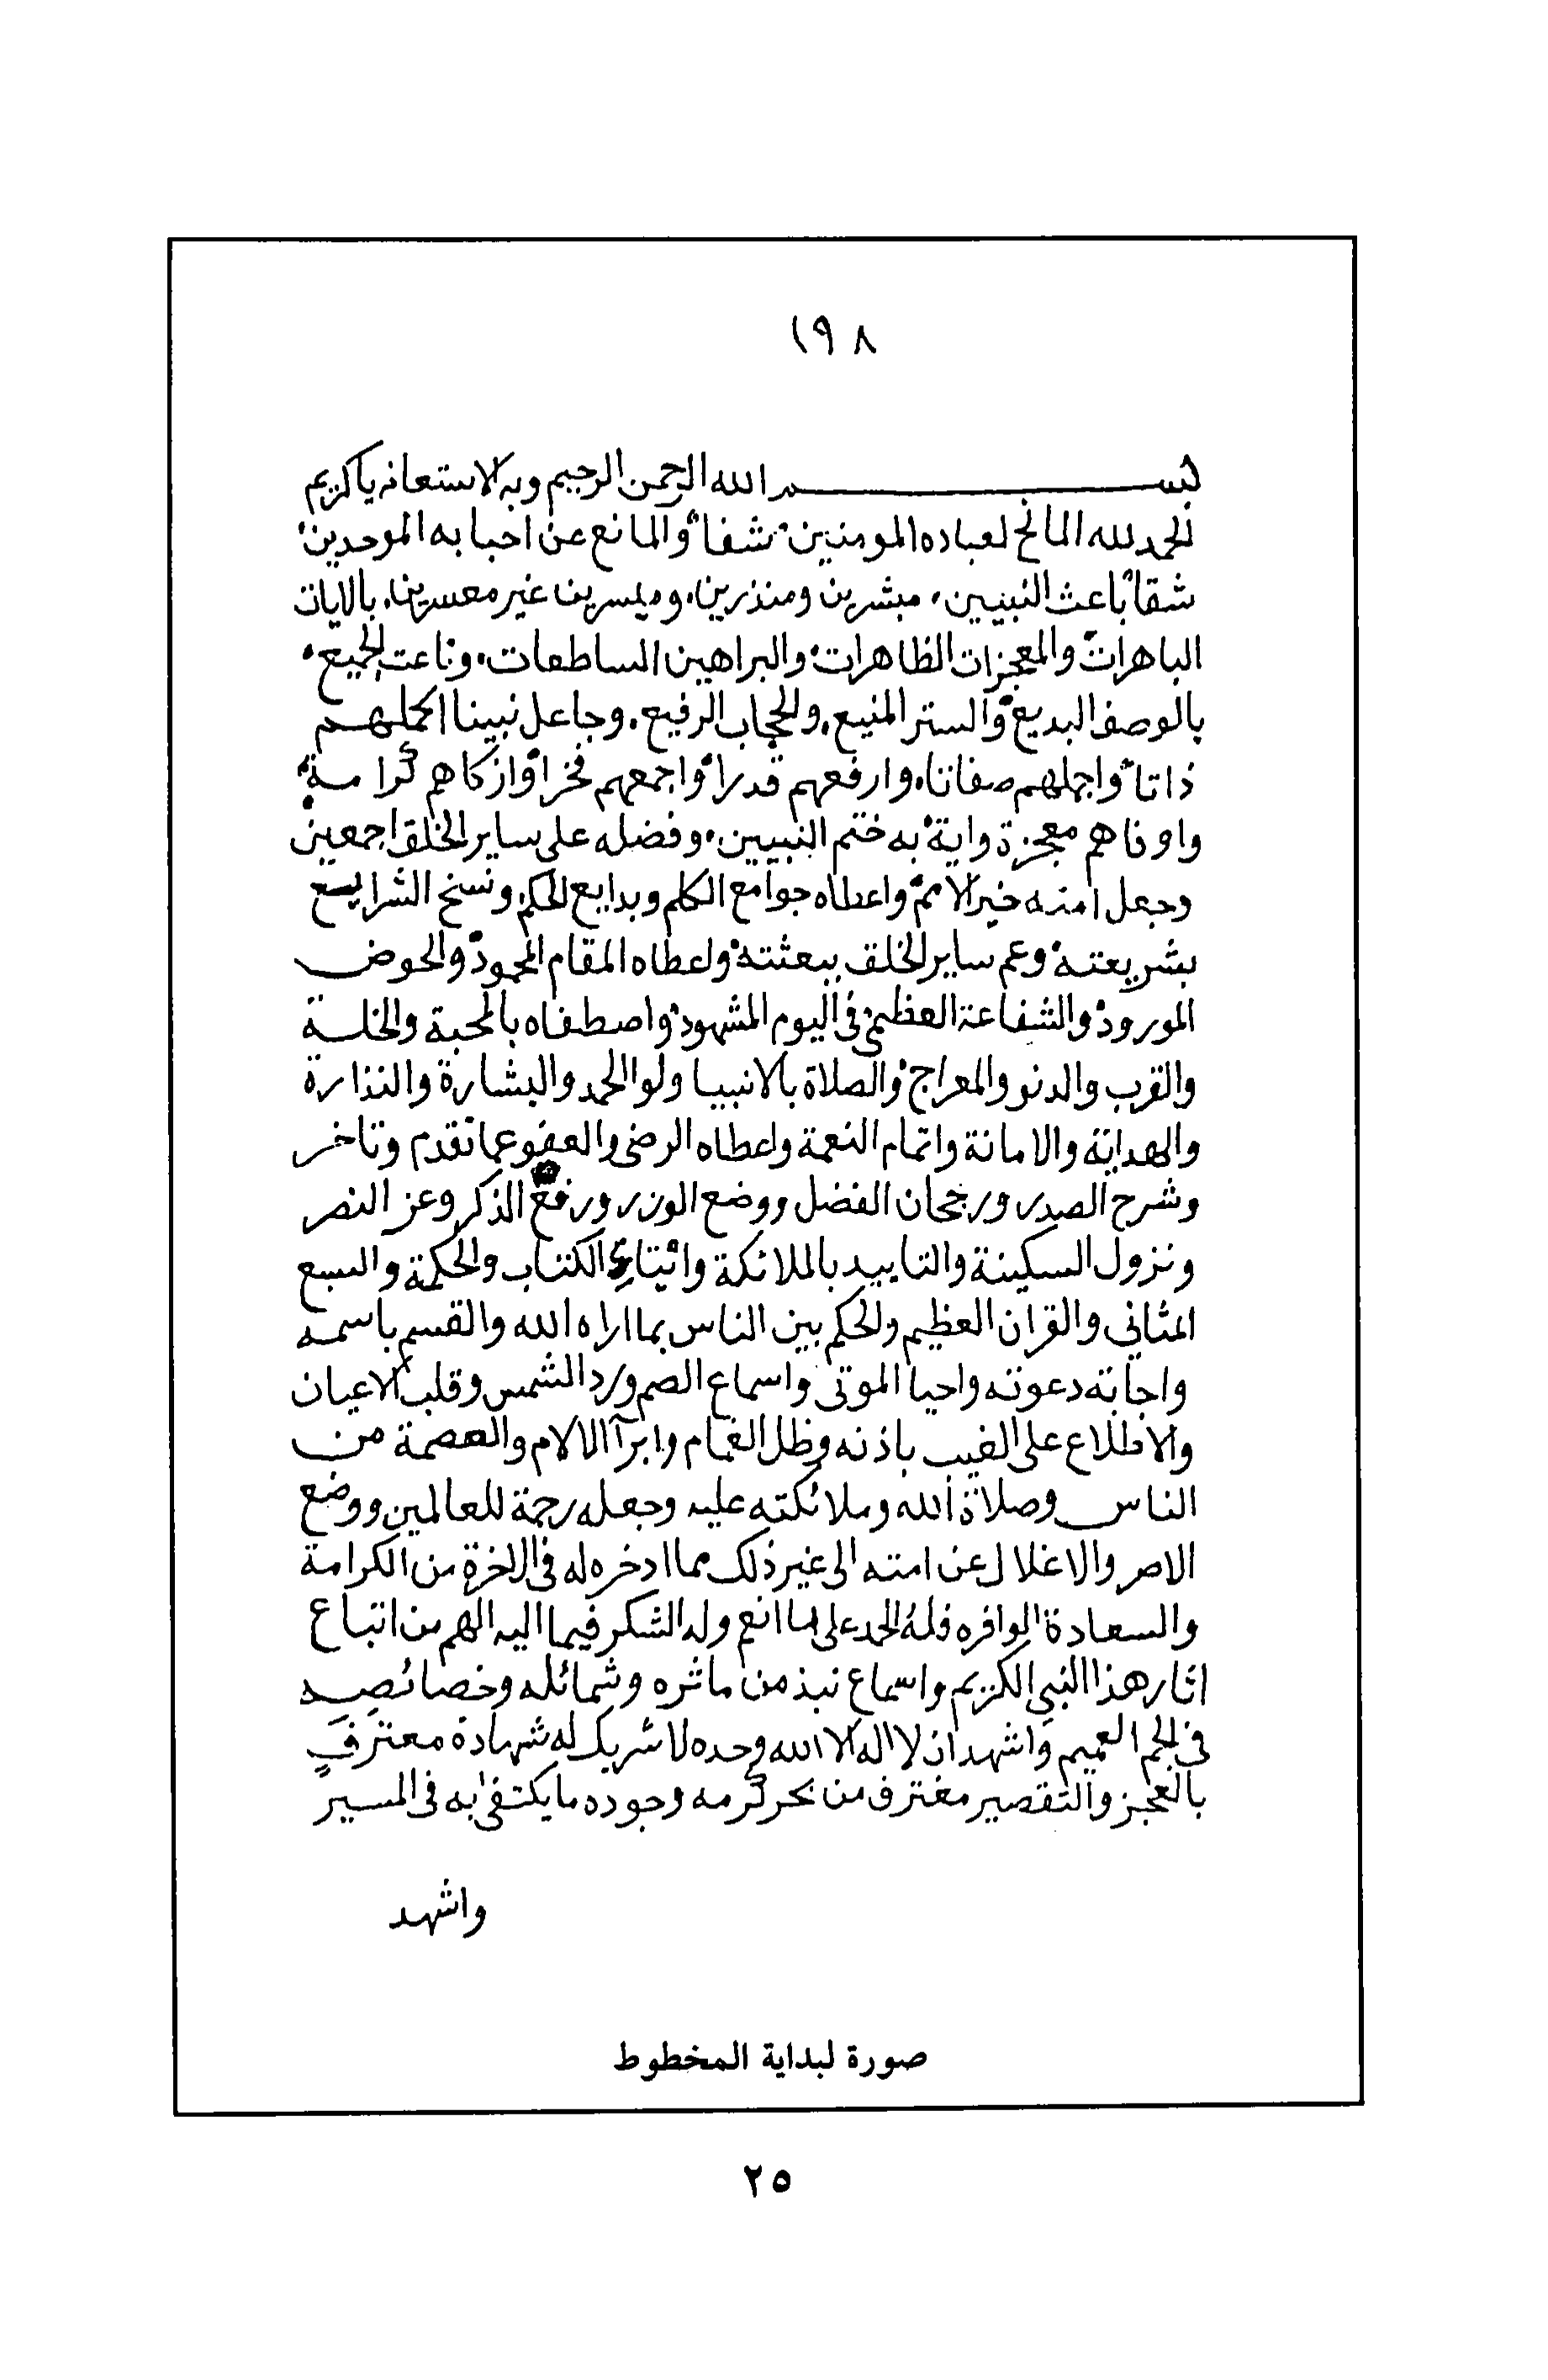 ١٩٨
بسم الله الرحمن الرحيم وبه الاستعانه ياكريم
الحمد لله المانح لعباده المومنين شفاً والمانع عن احبابه الموحدين
شقاً باعث النبيين مبشرين ومنذرين وميسرين غير معسرين بالايات
الباهرات والمعجزات الظاهرات والبراهين الساطعات وناعت الجميع
بالوصف البديع والستر المنيع والحجاب الرفيع وجاعل نبينا اكملهم
ذاتا واجملهم صفاتا وارفعهم قدرا واجمعهم فخرا وازكاهم كرامة
واوفاهم معجزة واية به ختم النبيين وفضله على ساير الخلق اجمعين
وجعل امته خير الامم واعطاه جوامع الكلم وبدايع الحكم ونسخ الشرايع
بشريعته وعم ساير الخلق ببعثته واعطاه المقام المحمود والحوض
المورود والشفاعة العظمى في اليوم المشهود واصطفاه بالمحبة والخلة
والقرب والدنو والمعراج والصلاة بالانبيا ولوا الحمد والبشارة والنذارة
والهداية والامانة واتمام النعمة واعطاه الرضى والعفو عما تقدم وتاخر
وشرح الصدر ورجحان الفضل ووضع الوزر ورفع الذكر وعز النصر
ونزول السكينة والتاييد بالملائكة وائيتاء الكتاب والحكمة والسبع
المثاني والقران العظيم والحكم بين الناس بما اراه الله والقسم باسمه
واجابة دعوته واحيا الموتى واسماع الصم ورد الشمس وقلب الاعيان
والاطلاع على الغيب باذنه وظل الغمام وابرآ الالام والعصمة من
الناس وصلاة الله وملائكته عليه وجعله رحمة للعالمين ووضع
الاصر والاغلال عن امته الى غير ذلك مما ادخره له في الاخرة من الكرامة
والسعادة الوافره فله الحمد على ما انعم وله الشكر فيما اليه الهم من اتباع
اثار هذا النبي الكريم واسماع نبذ من ماثره وشمائله وخصائصه
في الجم العميم واشهد ان لا اله الا الله وحده لا شريك له شهادة معترفٍ
بالعجز والتقصير مغترف من بحر كرمه وجوده ما يكتفى به في المسير
واشهد
صورة لبداية المخطوط
٢٥